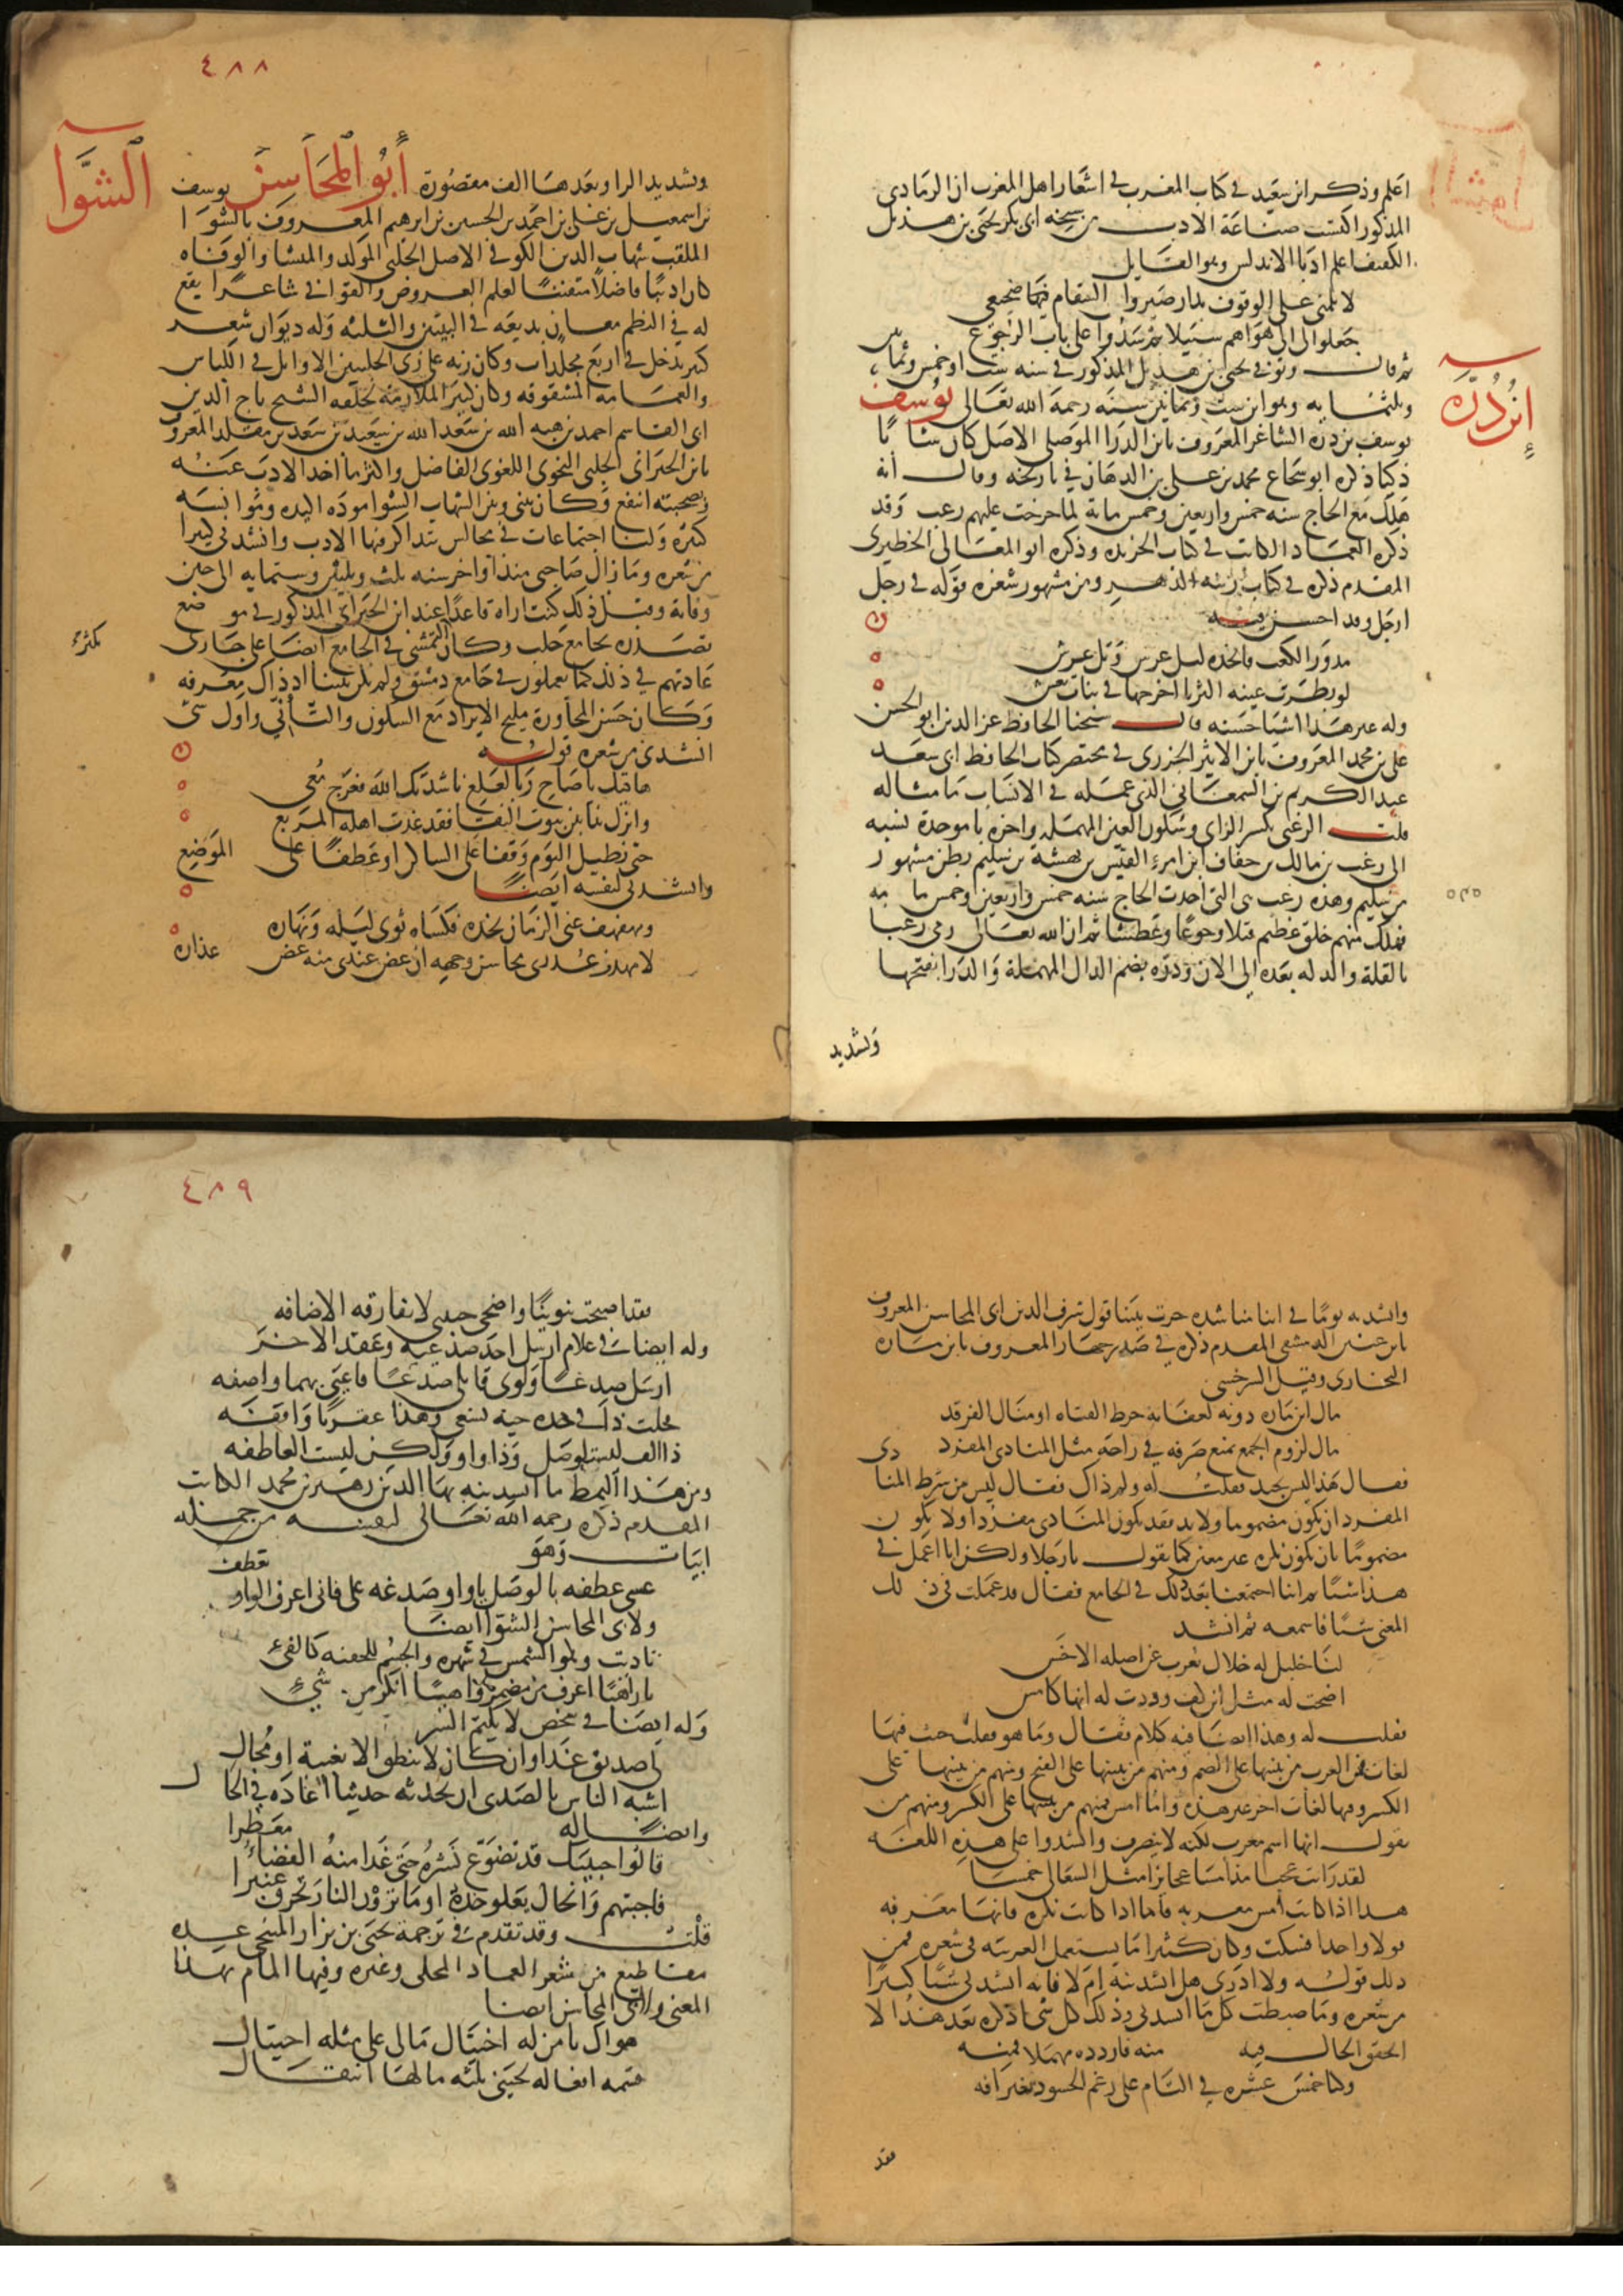 اعلم وذكر ابن سعيد في كتاب المغرب في اشعار اهل المغرب ان الرمادي
المذكور اكتسب صناعة الادب من شيخه ابي بكر يحيى بن هذيل
الكفيف اعلم ادبا الاندلس وهو القايل
لا تلمني على الوقوف بدار صيروا السقام فيها ضجيعي
جعلوا لي الى هواهم سبيلا ثم سدوا على باب الرجوع
ثم قال وتوفي يحيى بن هذيل المذكور في سنه ست او خمس وثمانين
وثلثمايه وهو ابن ست وثمانين سنه رحمه الله تعالى يوسف
ابن دره
يوسف بن دره الشاعر المعروف بابن الدرا الموصلي الاصل كان شابا
ذكيا ذكره ابو شجاع محمد بن علي بن الدهان في تاريخه وقال انه
هلك مع الحاج سنه خمس واربعين وخمس ماية لما خرجت عليهم زعب وقد
ذكره العماد الكاتب في كتاب الخريده وذكره ابو المعالي الخطيري
المقدم ذكره في كتاب زينه الدهر ومن مشهور شعره قوله في رجل
ارجل وقد احسن فيه
مدور الكعب فاتخذه لتل غرس وثل عرش
لو رمقت عينه الثريا اخرجها في بنات نعش
وله غير هذا اشيا حسنه قال شيخنا الحافظ عز الدين ابو الحسن
علي بن محمد المعروف بابن الاثير الجزري في مختصر كتاب الحافظ ابي سعد
عبد الكريم بن السمعاني الذي عمله في الانساب ما مثاله
قلت الزعبي بكسر الزاي وسكون العين المهمله واخره با موحدة نسبه
الى زغب بن مالك بن خفاف بن امرء القيس بن بهشة بن سليم بطن مشهور
من سليم وهذه زعب هي التي اخذت الحاج سنه خمس واربعين وخمس مايه
٥٤٥
فهلك منهم خلق عظيم قتلا وجوعا وعطشا ثم ان الله تعالى رمى زعبا
بالقلة والذله بعده الى الان ودره بضم الدال المهملة والدرا بفتحها
وتشديد
٤٨٨
وتشديد الرا وبعدها الف مقصورة أبو المحاسن يوسف
الشوا
بن اسمعيل بن علي بن احمد بن الحسين بن ابرهيم المعروف بالشوا
الملقب شهاب الدين الكوفي الاصل الحلبي المولد والمنشا والوفاه
كان اديبا فاضلا متقنا لعلم العروض والقوافي شاعرا يقع
له في النظم معان بديعه في البيتين والثلثه وله ديوان شعر
كبير يدخل في اربع مجلدات وكان زيه على زي الحلبيين الاوايل في اللباس
والعمامه المشقوقه وكان كثير الملازمة لحلقه الشيخ تاج الدين
ابي القاسم احمد بن هبه الله بن سعد الله بن سعيد بن سعد بن مقلد المعروف
بابن الجبراني الحلبي النحوي اللغوي الفاضل واكثر ما اخذ الادب عنه
وبصحبته انتفع وكان بيني وبين الشهاب الشوا موده اكيده وموانسه
كثيره ولنا اجتماعات في مجالس نتذاكر فيها الادب وانشدني كثيرا
من شعره وما زال صاحبي منذ اواخر سنه ثلث وثلثين وستمايه الى حين
وفاته وقبل ذلك كنت اراه قاعدا عند ابن الجبراني المذكور في موضع
تصدره بجامع حلب وكان التمشي في الجامع ايضا على جاري
يكثر
عادتهم في ذلك كما يعملون في جامع دمشق ولم يكن بيننا اذ ذاك معرفه
وكان حسن المحاورة مليح الايراد مع السكون والتأني واول شي
انشدني من شعره قوله
هاتيك يا صاح ربا لعلع ناشدتك الله فعرج معي
وانزل بنا بين بيوت النقا فقد غدت اهله المربع
حتى نطيل اليوم وقفا على الساكن او عطفا على الموضع
وانشدني لنفسه ايضا
ومهفهف عني الزمان بخده فكساه ثوبي ليله ونهاره
لا مهدت عذري محاسن وجهه ان غض عندي منه غض عذاره
وانشدته يوما في اثنا مناشده جرت بيننا قول شرف الدين ابي المحاسن المعروف
بابن عنين الدمشقي المقدم ذكره في صدر جهان المعروف بابن مازه
البخاري وقيل السرخسي
مال ابن مازه دونه لعفاته خرط القتاده او منال الفرقد
مال لزوم الجمع يمنع صرفه في راحة مثل المنادى المفرد
فقال هذا ليس بجيد فقلت له ولم ذاك فقال ليس من شرط المنادى
المفرد ان يكون مضموما ولا بد فقد يكون المنادى مفردا ولا يكون
مضموما بان يكون نكره غير معين كما يقول يا رجلا ولكن انا اعمل في
هذا شيا ثم اننا اجتمعنا بعد ذلك في الجامع فقال قد عملت في ذلك
المعنى شيا فاسمعه ثم انشد
لنا خليل له خلال تعرب عن اصله الاخس
اضحت له مثل اين كيف وددت له انها كامس
فقلت له وهذا ايضا فيه كلام فقال وما هو فقلت حيث فيها
لغات فمن العرب من يبنيها على الضم ومنهم من يبنيها على الفتح ومنهم من يبنيها على
الكسر وفيها لغات اخر غير هذه واما امس فمنهم من يبنيها على الكسر ومنهم من
يقول انها اسم معرب لكنه لا ينصرف وانشدوا على هذه اللغه
لقد رايت عجبا مذ امسا عجايزا مثل السعالى خمسا
هذا اذا كانت امس معرفه فاما اذا كانت نكره فانها معربه
قولا واحدا فسكت وكان كثيرا ما يستعمل العربيه في شعره فمن
ذلك قوله ولا ادري هل انشدنيه ام لا فانه انشدني شيا كثيرا
من شعره وما ضبطت كل ما انشدني وذلك كل شي اذكره بعد هذا لا
احقق الحال فيه
وكنا خمس عشره في التام على رغم الحسود بغير افه
فقد
٤٨٩
فقد اصبحت تنوينا واضحى حبيبي لا تفارقه الاضافه
وله ايضا في غلام ارسل احد صدغيه وعقد الاخر
ارسل صدغا ولوى قاتلي صدغا فاعيى بهما واصفه
فخلت ذا في خده حية تسعى وهذا عقربا واقفه
ذا الف ليست لوصل وذا واو ولكن ليست العاطفه
ومن هذا النمط ما انشدنيه بها الدين زهير بن محمد الكاتب
المقدم ذكره رحمه الله تعالى لنفسه من جمله
ابيات وهو
عسى عطفه بالوصل يا واو صدغه علي فاني اعرف الواو تعطف
ولابي المحاسن الشوا ايضا
ناديت وهو الشمس في شهره والجسم للخفيه كالفيء
يا زاهيا اعرف من مضمر يا واهيا انكر من شيء
وله ايضا في شخص لا يكتم السر
لي صديق غدا وان كان لا ينطق الا بغيبة او محال
اشبه الناس بالصدى ان تحدثه حديثا اعاده في الحال
وايضا له
قالوا حبيبك قد تضوع نشره حتى غدا منه الفضاء معطرا
فاجبتهم والخال يعلو خده او ما ترون النار تحرق عنبرا
قلت وقد تقدم في ترجمة يحيى بن نزار المنبجي عده
مقاطيع من شعر العماد المحلي وغيره وفيها المام بهذا
المعنى ولابي المحاسن ايضا
هواك يا من له اختيال مالي على مثله احتيال
قسمه افعاله لحيني ثلثه مالها انتقال